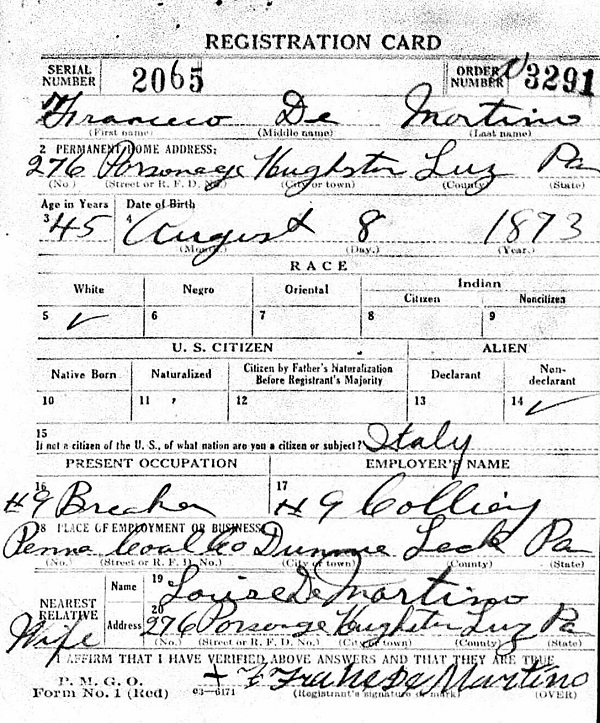 REGISTRATION CARD
SERIAL NUMBER 2065 ORDER NUMBER 3291
1 Francesco De Martino
(First name) (Middle name) (Last name)
2 PERMANENT HOME ADDRESS:
276 Parsonage Hughstn Luz Pa
(No.) (Street or R. F. D. No.) (City or town) (County) (State)
Age in Years Date of Birth
3 45 4 August 8 1873
(Month.) (Day.) (Year.)
RACE
White Negro Oriental Indian
Citizen Noncitizen
5 ✓ 6 7 8 9
U. S. CITIZEN ALIEN
Native Born Naturalized Citizen by Father's Naturalization Before Registrant's Majority Declarant Non-declarant
10 11 12 13 14 ✓
15
If not a citizen of the U. S., of what nation are you a citizen or subject? Italy
PRESENT OCCUPATION EMPLOYER'S NAME
16 17
#9 Breaker #9 Colliery
18 PLACE OF EMPLOYMENT OR BUSINESS:
Penna Coal Co Luz Pa
(No.) (Street or R. F. D. No.) (City or town) (County) (State)
NEAREST RELATIVE Name 19 Louise De Martino
Wife Address 20 276 Parsonage Hughstn Luz Pa
(No.) (Street or R. F. D. No.) (City or town) (County) (State)
I AFFIRM THAT I HAVE VERIFIED ABOVE ANSWERS AND THAT THEY ARE TRUE
P. M. G. O.
Form No. 1 (Red) 03—6171 De Martino
(Registrant's signature or mark) (OVER)